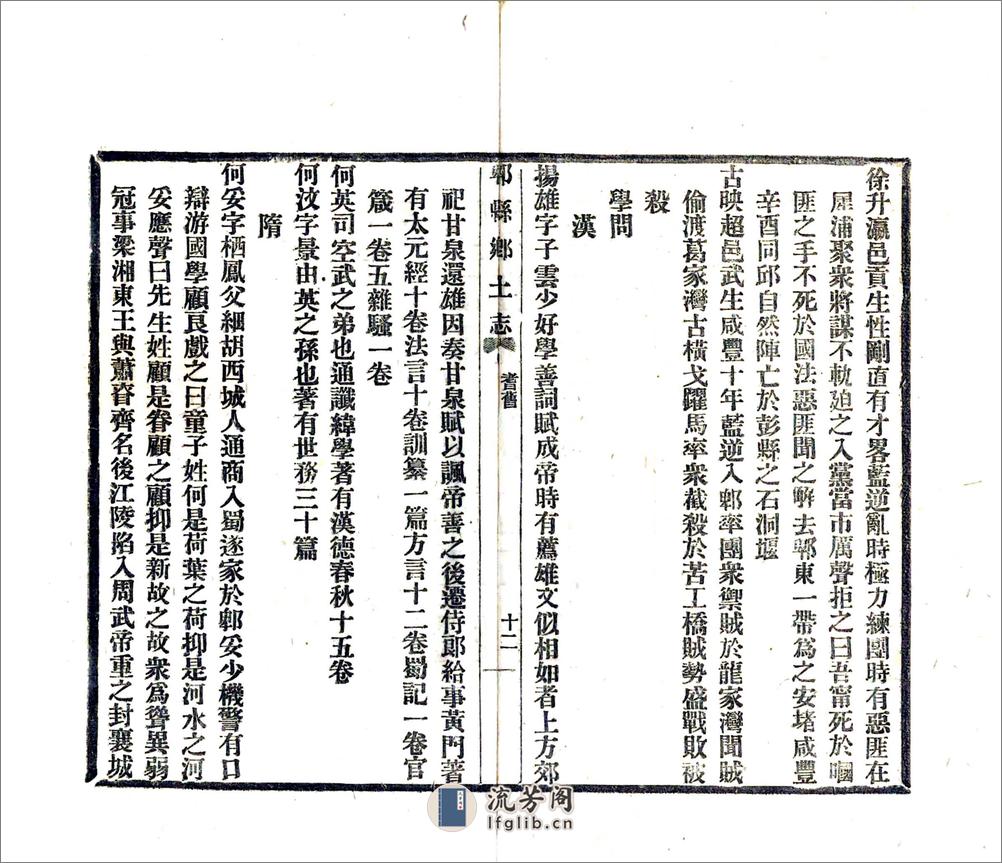 徐升瀛邑貢生性剛直有才畧藍逆亂時極力練團時有惡匪在
犀浦聚衆將謀不軌廹之入黨當市厲聲拒之曰吾甯死於嘓
匪之手不死於國法惡匪聞之觧去郫東一帶爲之安堵咸豐
辛酉同邱自然陣亡於彭縣之石洞堰
古映超邑武生咸豐十年藍逆入郫率團衆禦賊於龍家灣聞賊
偷渡葛家灣古橫戈躍馬率衆截殺於苦工橋賊勢盛戰敗被
殺
學問
漢
揚雄字子雲少好學善詞賦成帝時有薦雄文似相如者上方郊
郫縣鄉土志
耆舊
十二
祀甘泉還雄因奏甘泉賦以諷帝善之後遷侍郎給事黃門著
有太元經十卷法言十卷訓纂一篇方言十二卷蜀記一卷官
箴一卷五雜騷一卷
何英司空武之弟也通讖緯學著有漢德春秋十五卷
何汶字景由英之孫也著有世務三十篇
隋
何妥字栖鳳父細胡西城人通商入蜀遂家於郫妥少機警有口
辯游國學顧良戲之曰童子姓何是荷葉之荷抑是河水之河
妥應聲曰先生姓顧是眷顧之顧抑是新故之故衆爲聳異弱
冠事梁湘東王與蕭眘齊名後江陵陷入周武帝重之封襄城
流芳阁
lfglib.cn